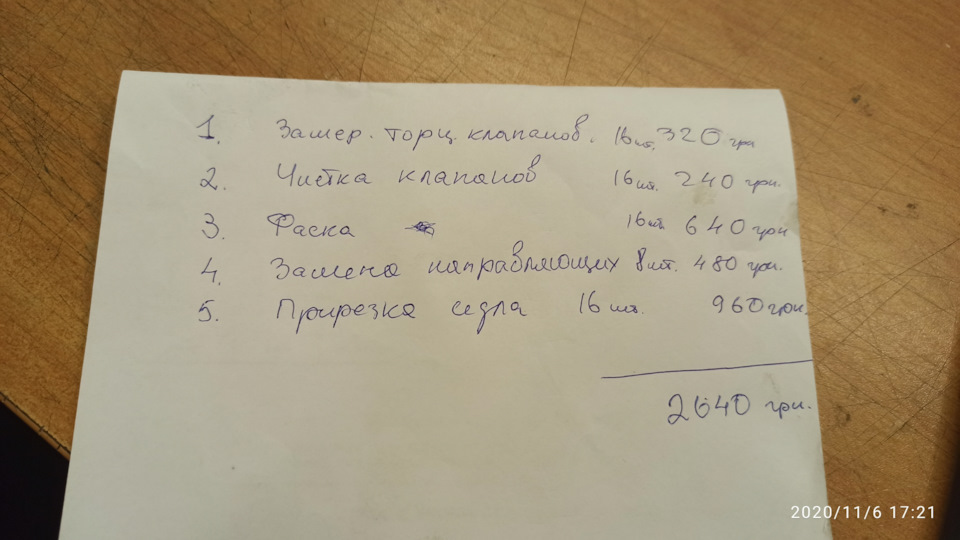 1. Замер. торц. клапанов. 16шт. 320 грн
2. Чистка клапанов 16шт. 240 грн.
3. Фаска 16шт. 640 грн
4. Замена направляющих 8шт. 480 грн.
5. Прирезка седла 16 шт. 960 грн.
2640 грн.
2020/11/6 17:21